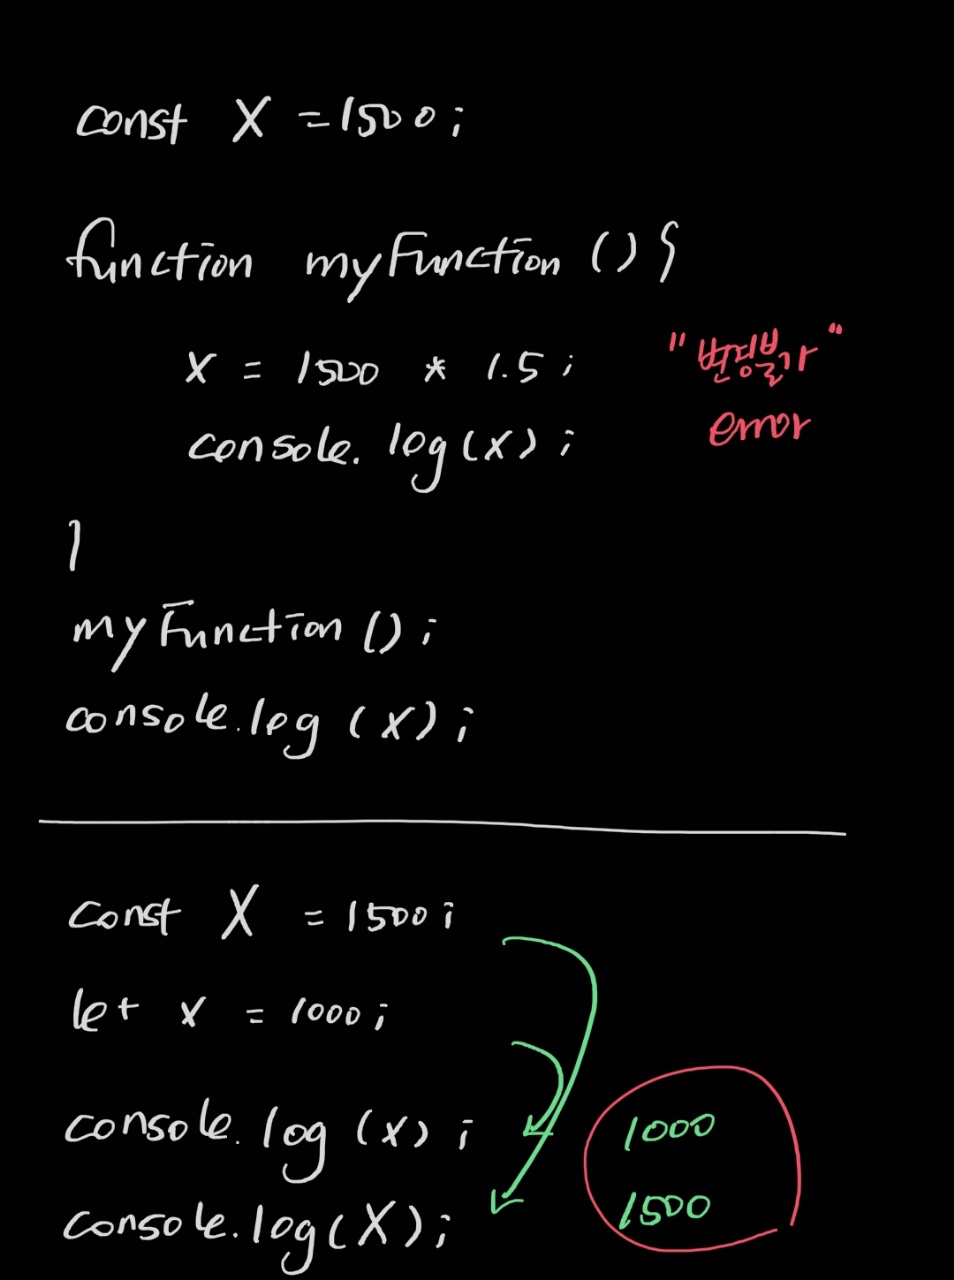 const X = 1500;
function myFunction () {
x = 1500 * 1.5; "변경불가"
console.log(x); error
}
myFunction();
console.log (x);
const X = 1500;
let x = 1000;
console.log (x); 1000
console.log(X); 1500